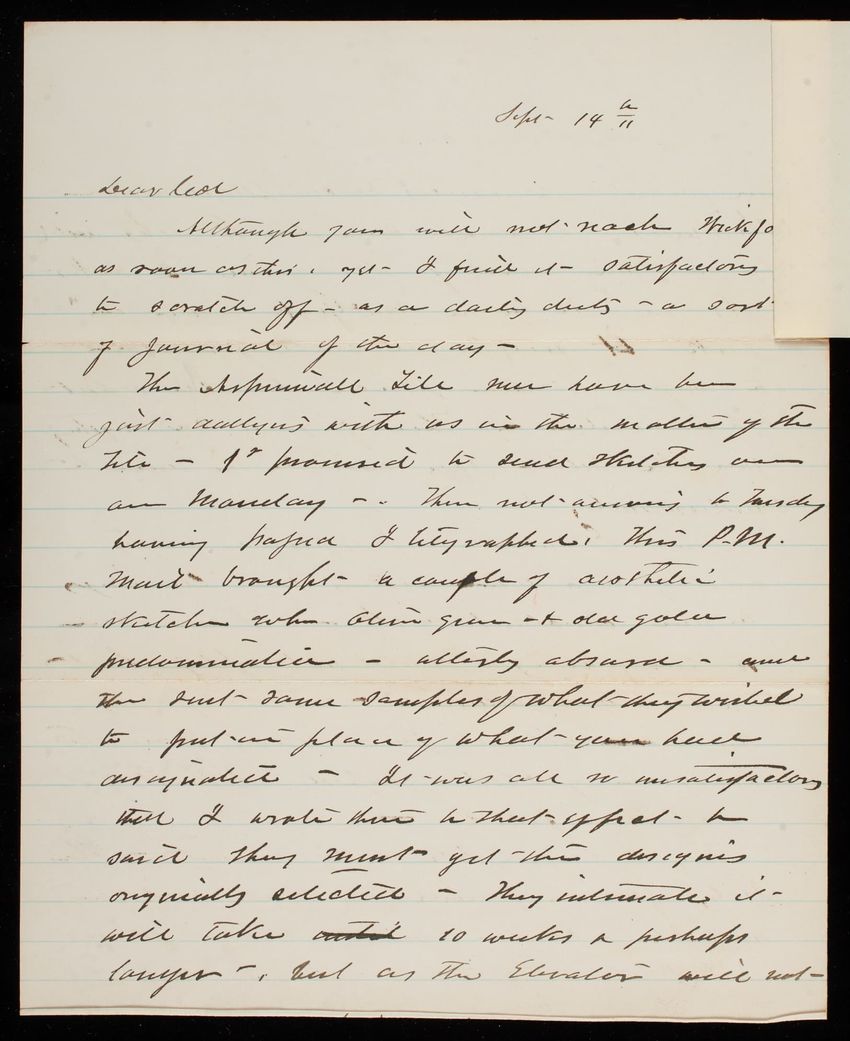 Sept- 14
Dear Col
Although you will not reach Wickfo
as soon as this, yet- I find it- satisfactory
to scratch off - as a daily duty - a sort
of journal of the day -
The Aspinwall Tile men have been
just dallying with us in the matter of the
tile - 1st promised to send sketches
on Monday - Then not arriving to Tuesday
having passed I telegraphed, This P.M.
mail brought- a couple of aesthetic
sketches when Olive green + old gold
predominated - utterly absurd - and
sent some samples of what they wished
to put in place of what you had
designated - It was all so unsatisfactory
that I wrote them to that effect- &
said they must get the designs
originally selected - They intimate it
will take until 10 weeks or perhaps
longer -, but as the Elevator will not-